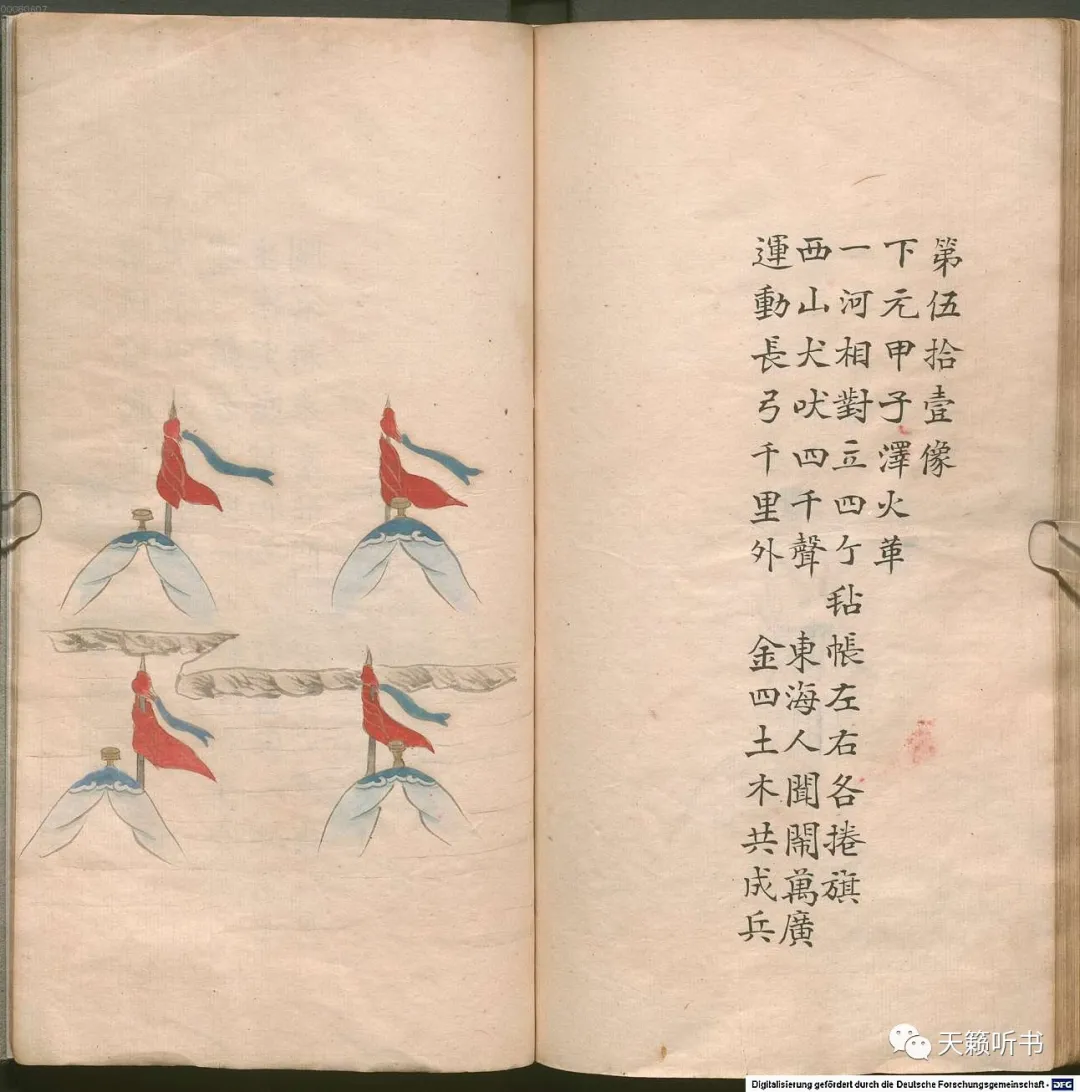 第伍拾壹像
下元甲子澤火革
一河相對立四亇毡帳左右各捲旗
西山犬吠四千聲 東海人聞鬧萬廣
運動長弓千里外 金四土木共成兵
天籁听书
Digitalisierung gefördert durch die Deutsche Forschungsgemeinschaft - DFG